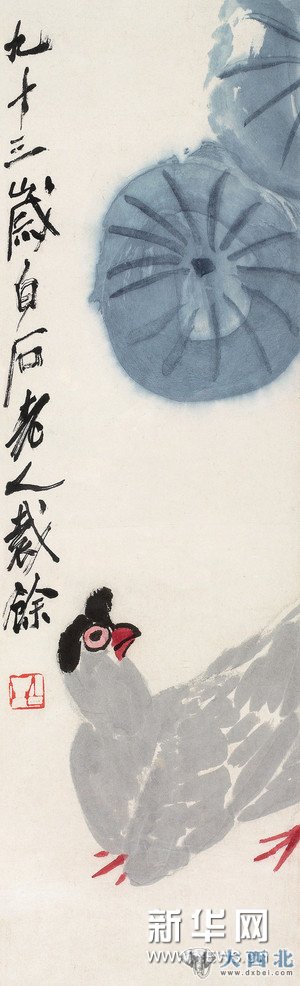 九十三歲白石老人裁餘
新华网
大西北
www.dxbei.com